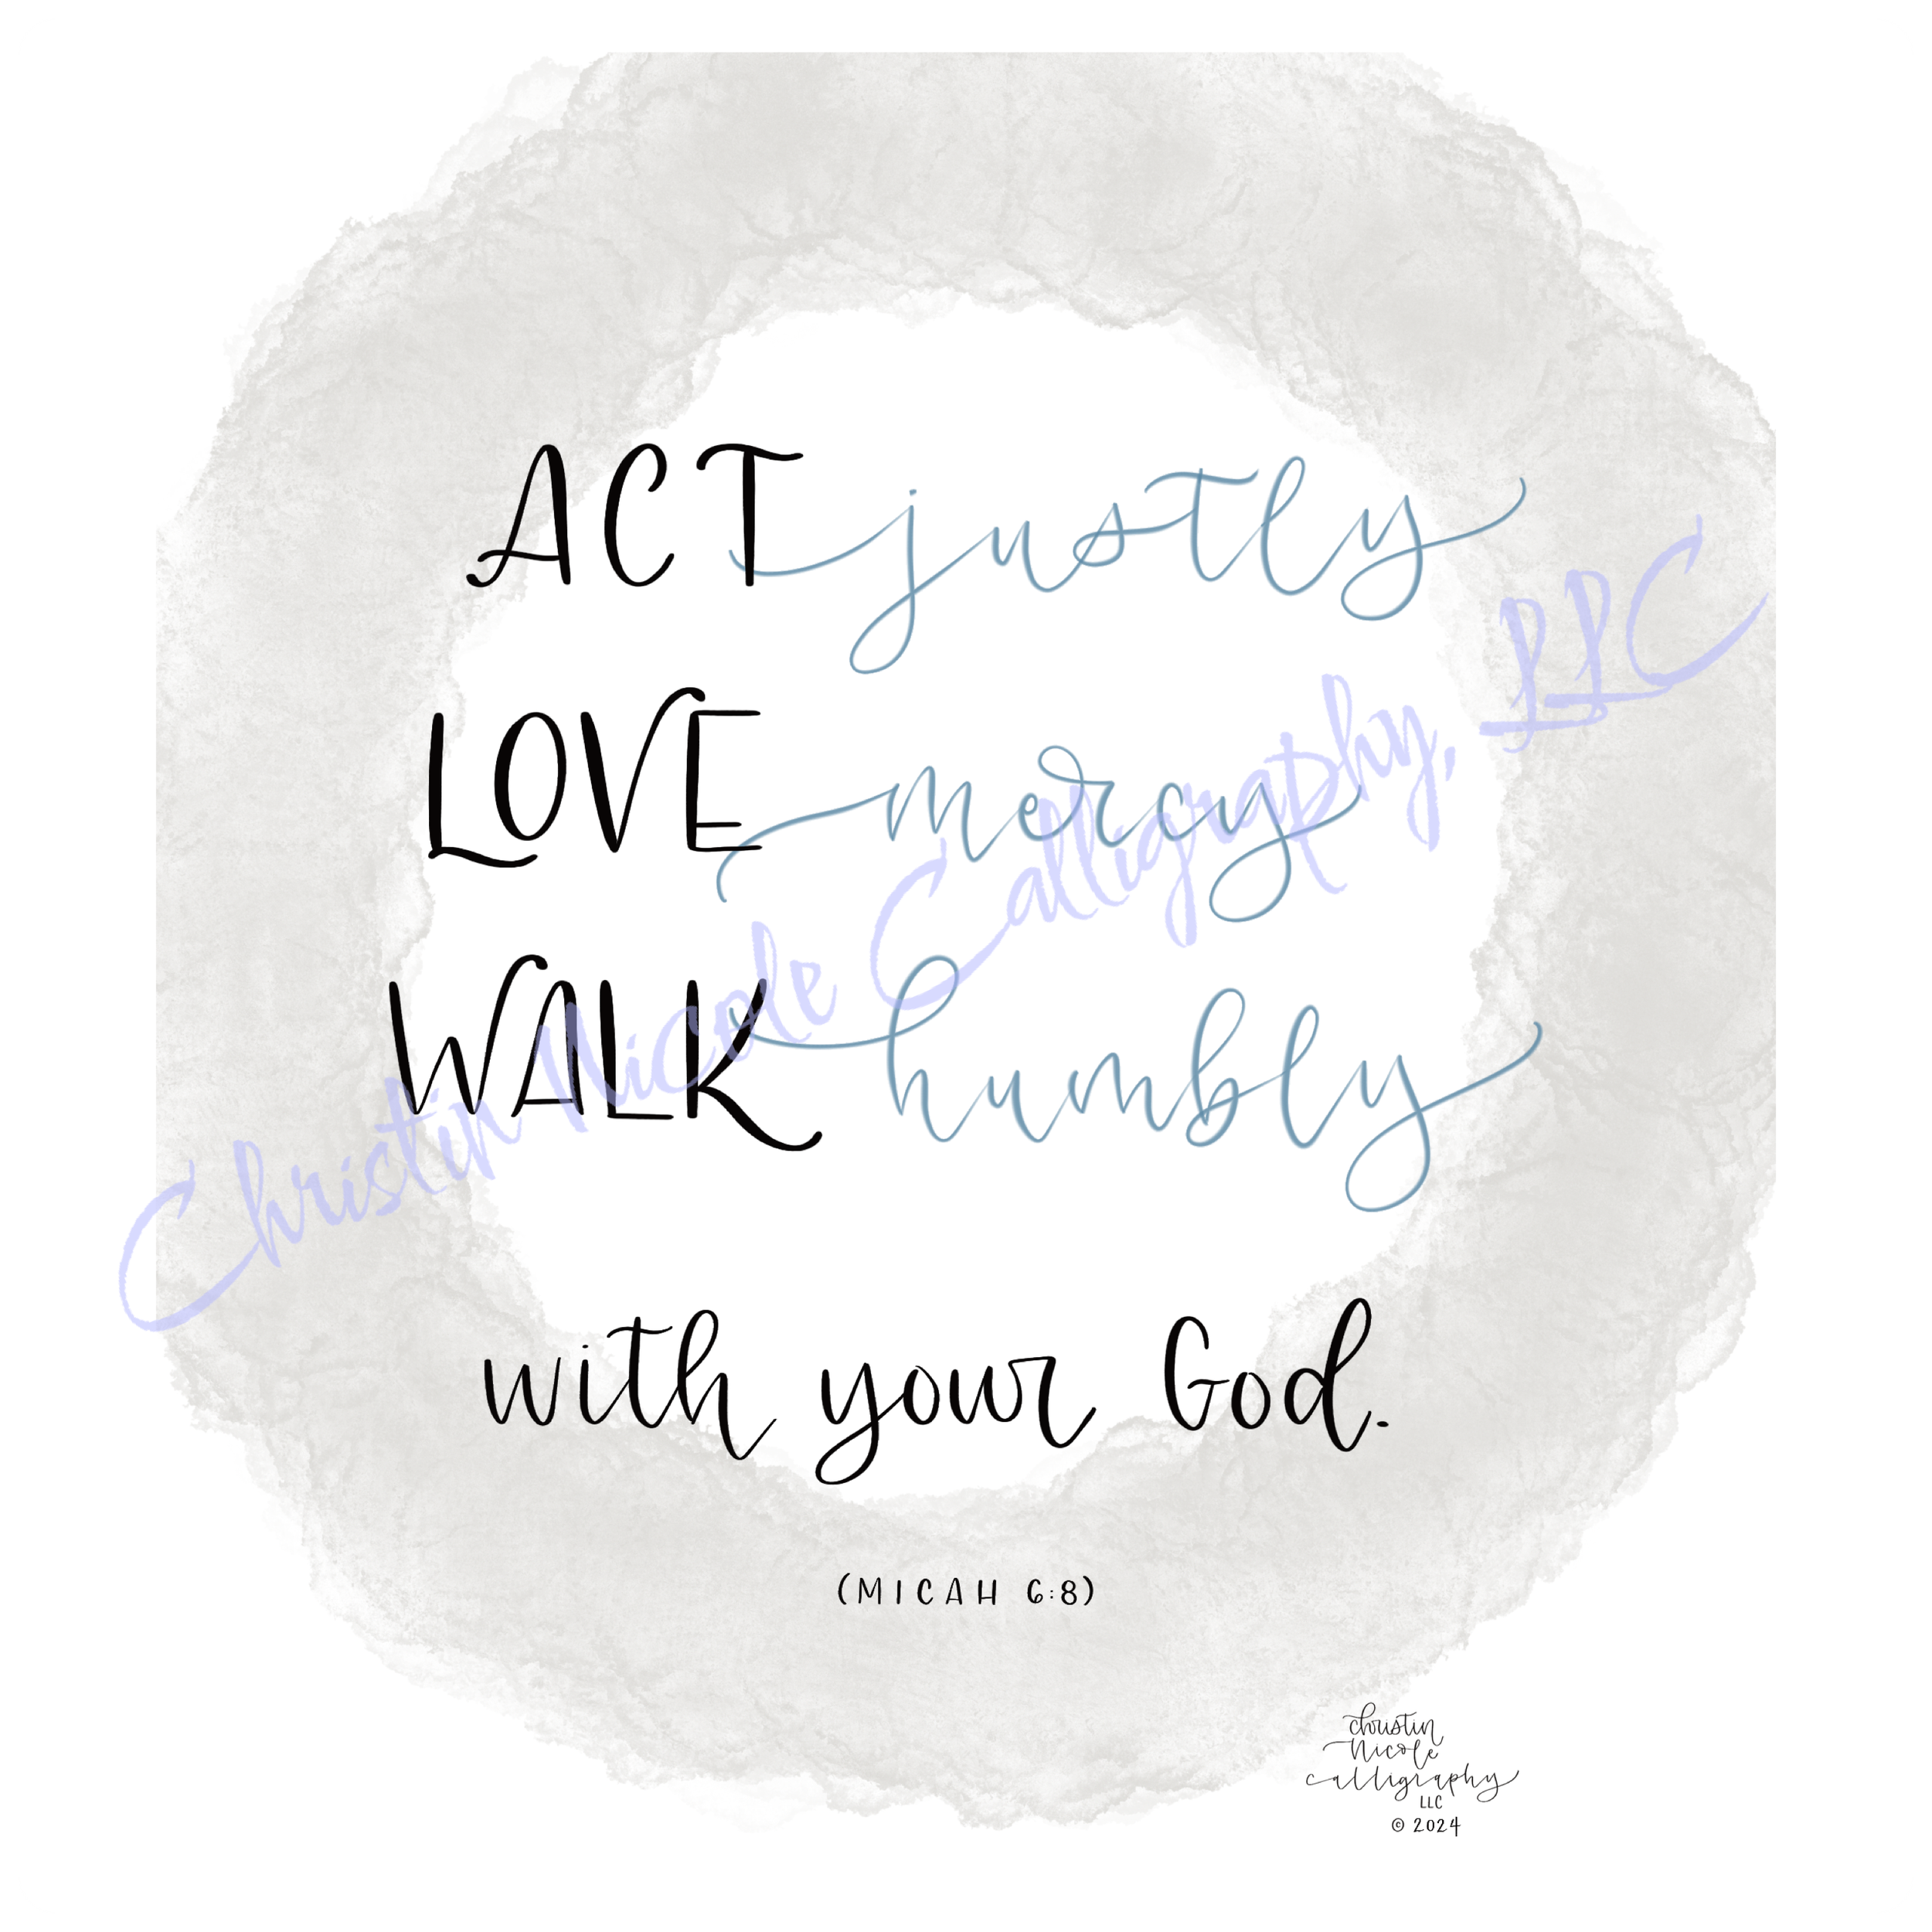 ACT justly
LOVE mercy
WALK humbly
with your God.
(MICAH 6:8)
Christin Nicole Calligraphy, LLC
christin
nicole
calligraphy
LLC
© 2024